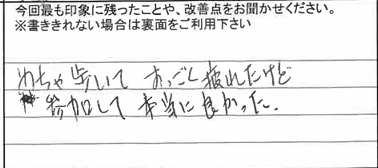 今回最も印象に残ったことや、改善点をお聞かせください。
※書ききれない場合は裏面をご利用下さい
めちゃ歩いて すっごく疲れたけど
参加して 本当に良かった.